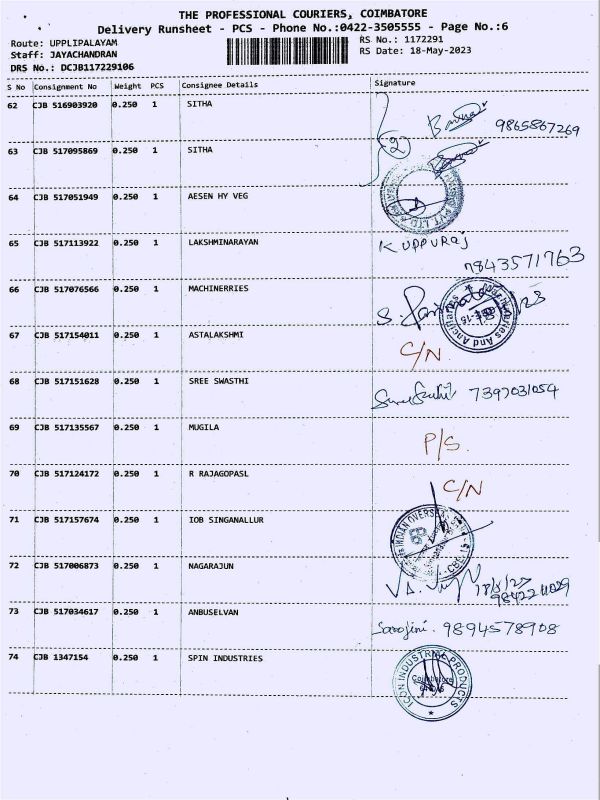 THE PROFESSIONAL COURIERS, COIMBATORE
Delivery Runsheet - PCS - Phone No.:0422-3505555 - Page No.:6
Route: UPPLIPALAYAM
RS No.: 1172291
Staff: JAYACHANDRAN
RS Date: 18-May-2023
DRS No.: DCJB117229106
S No Consignment No Weight PCS Consignee Details Signature
62 CJB 516903920 0.250 1 SITHA
9865867269
2
63 CJB 517095869 0.250 1 SITHA
64 CJB 517051949 0.250 1 AESEN HY VEG
65 CJB 517113922 0.250 1 LAKSHMINARAYAN K UPPURaj
7843571763
66 CJB 517076566 0.250 1 MACHINERRIES
And Ancillaries
67 CJB 517154011 0.250 1 ASTALAKSHMI
C/N
68 CJB 517151628 0.250 1 SREE SWASTHI
7397031054
69 CJB 517135567 0.250 1 MUGILA
P/S
70 CJB 517124172 0.250 1 R RAJAGOPASL
C/N
71 CJB 517157674 0.250 1 IOB SINGANALLUR
INDIAN OVERSEAS
72 CJB 517006873 0.250 1 NAGARAJUN
73 CJB 517034617 0.250 1 ANBUSELVAN
Sarojini. 9894578908
74 CJB 1347154 0.250 1 SPIN INDUSTRIES
ICON INDUSTRIAL PRODUCTS
Coimbatore